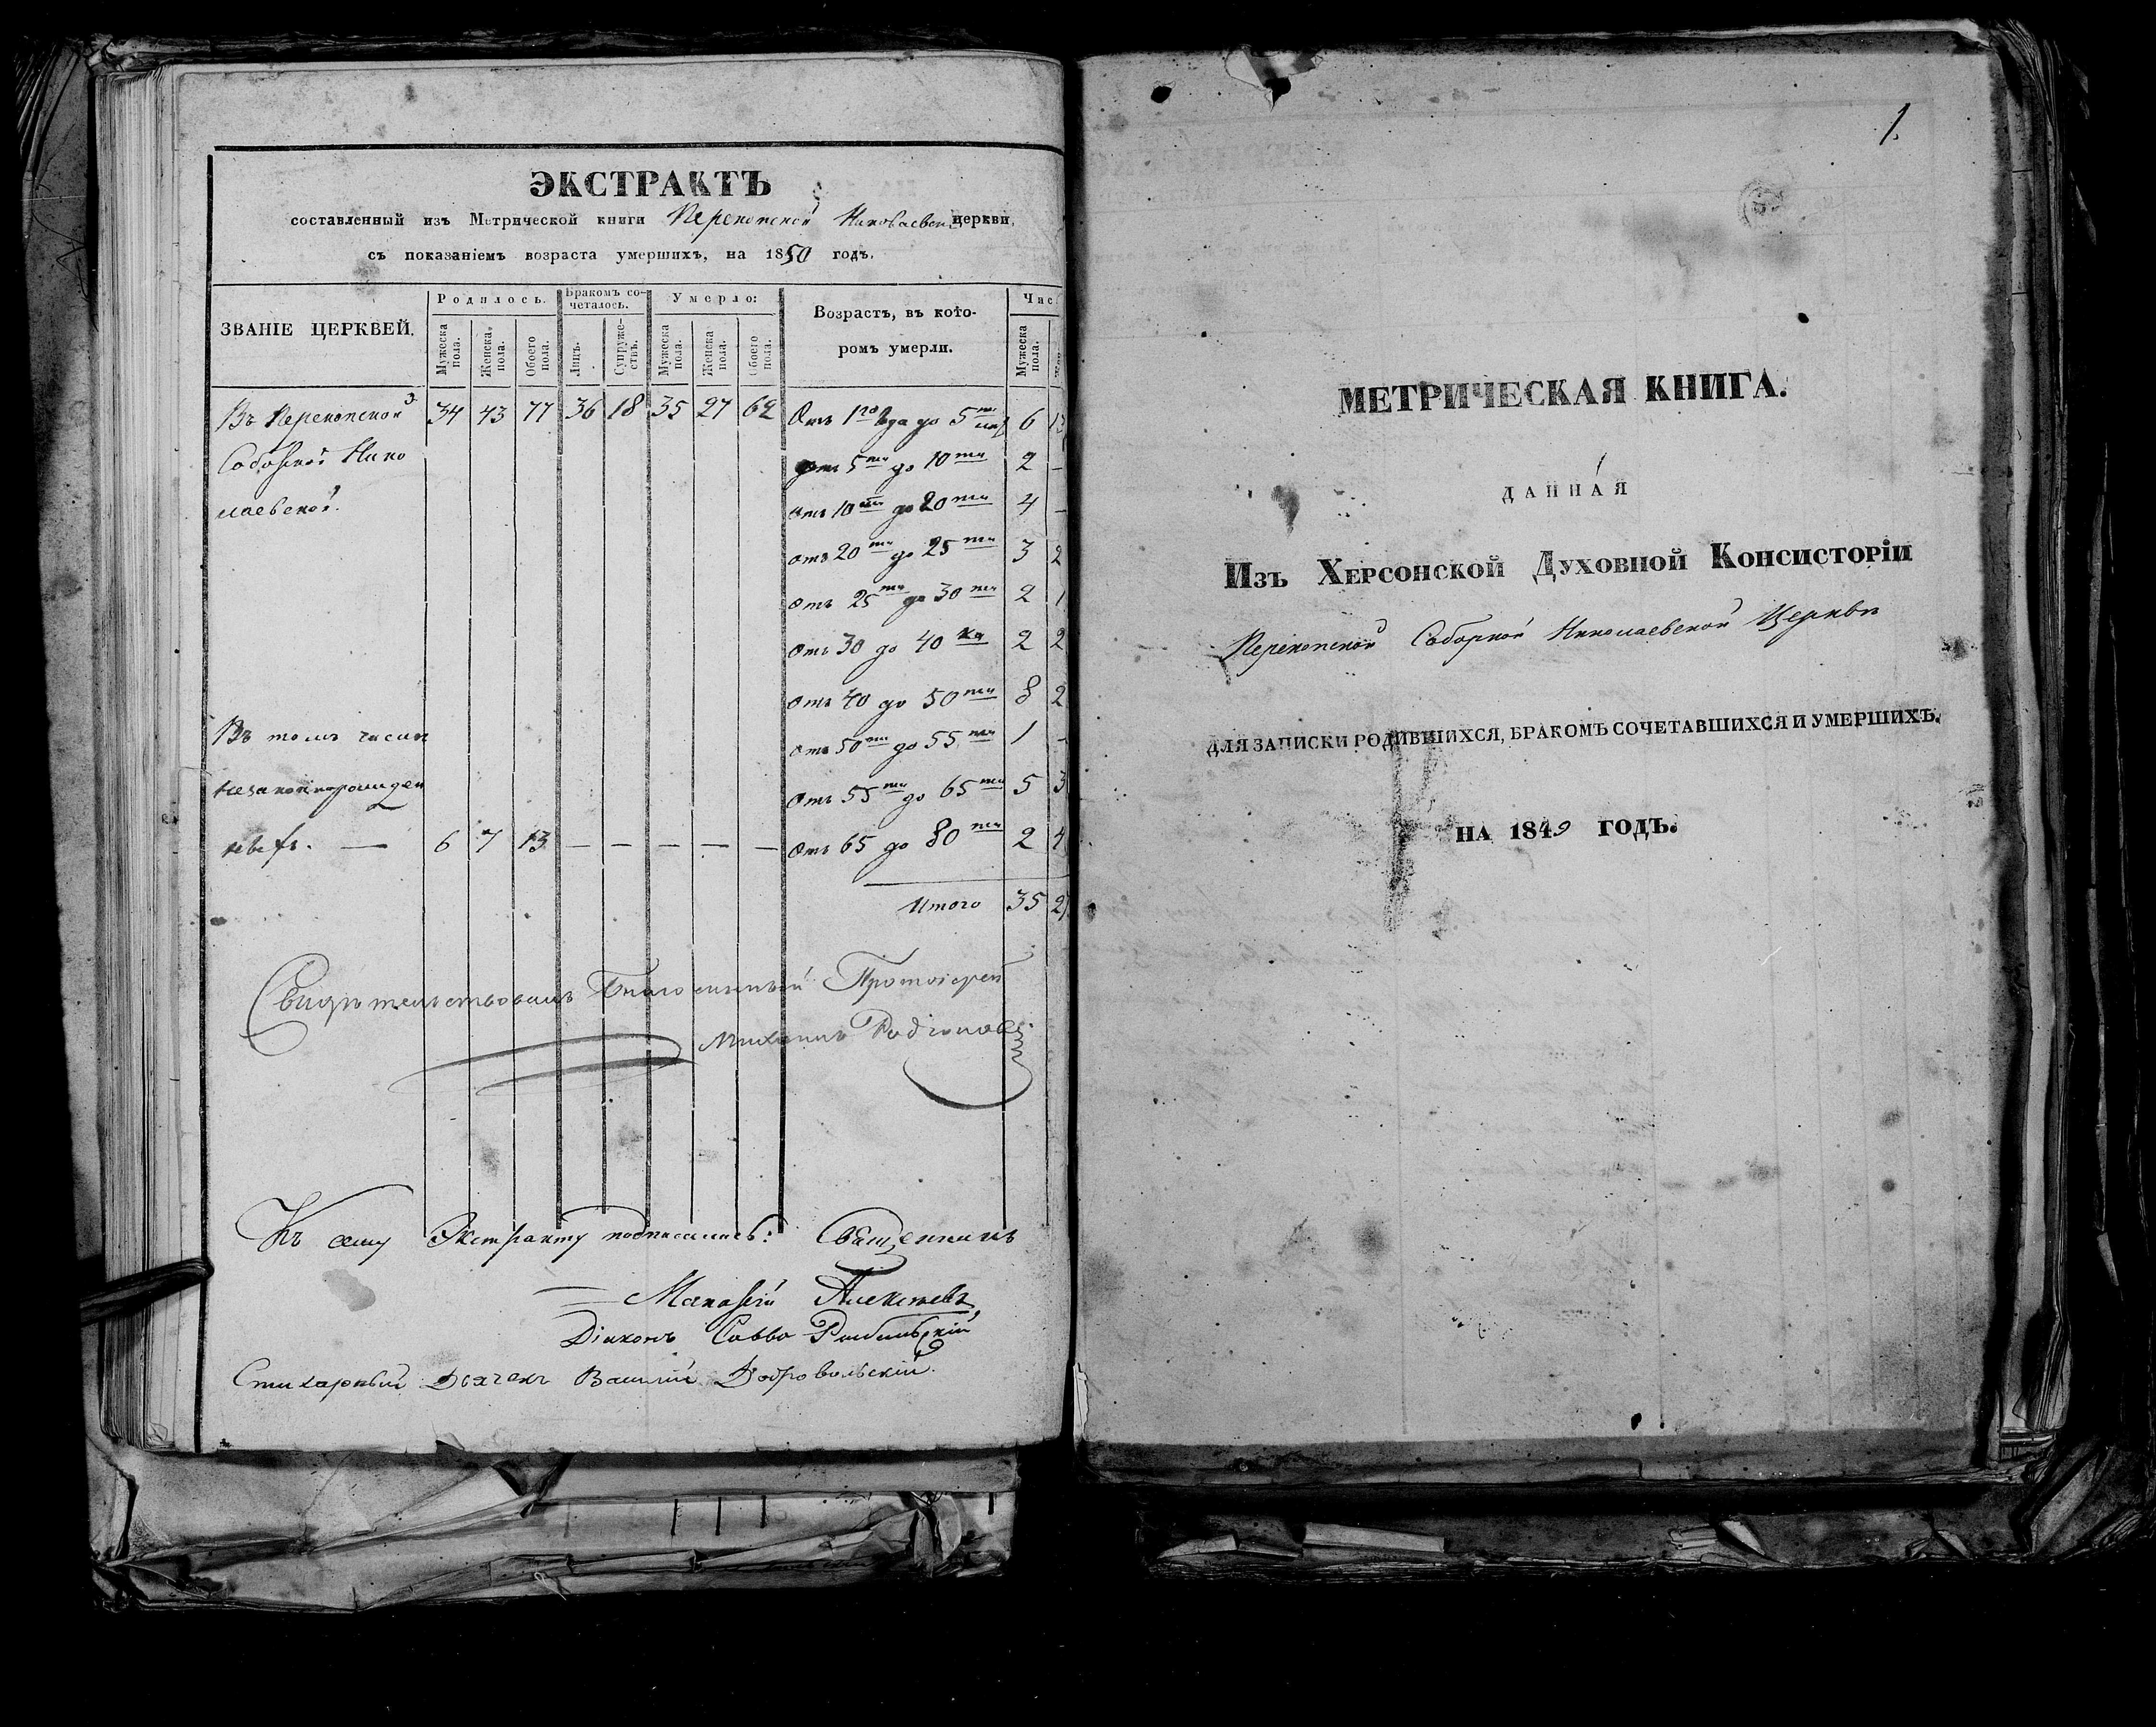 ЭКСТРАКТЪ
составленный изъ Метрической книги Перекопской Николаевской церкви,
съ показаніемъ возраста умершихъ, на 1850 годъ.
ЗВАНІЕ ЦЕРКВЕЙ.
Родилось.
Бракомъ со-
четалось.
Умерло:
Возрастъ, въ кото-
ромъ умерли.
Чис
Мужеска пола.
Женска пола.
Обоего пола.
Лицъ.
Супруже-
ствъ.
Мужеска пола.
Женска пола.
Обоего пола.
Мужеска пола.
Въ Перекопской 34 43 77 36 18 35 27 62 Отъ 1го года до 5ти 6 13
Соборной Нико Отъ 5ти до 10ти 2 —
лаевской. Отъ 10ти до 20ти 4 —
Отъ 20ти до 25ти 3 2
Отъ 25ти до 30ти 2 1
Отъ 30 до 40ка 2 2
Отъ 40 до 50ти 8 2
Въ томъ числѣ Отъ 50ти до 55ти 1 —
незаконнорожден Отъ 55ти до 65ти 5 3
ныхъ. — 6 7 13 — — — — — Отъ 65 до 80ти 2 4
Итого 35 27
Свидѣтельствовалъ Благочинный Протоіерей
Михаилъ Родіоновъ
Къ сему Экстракту подписались: Священникъ
Алексѣевъ,
Діаконъ Савва
Стихарный Дьячекъ Василій Добровольскій.
1.
МЕТРИЧЕСКАЯ КНИГА.
ДАННАЯ
Изъ Херсонской Духовной Консисторіи
Перекопской Соборной Николаевской Церкви
ДЛЯ ЗАПИСКИ РОДИВШИХСЯ, БРАКОМЪ СОЧЕТАВШИХСЯ И УМЕРШИХЪ.
НА 1849 ГОДЪ.